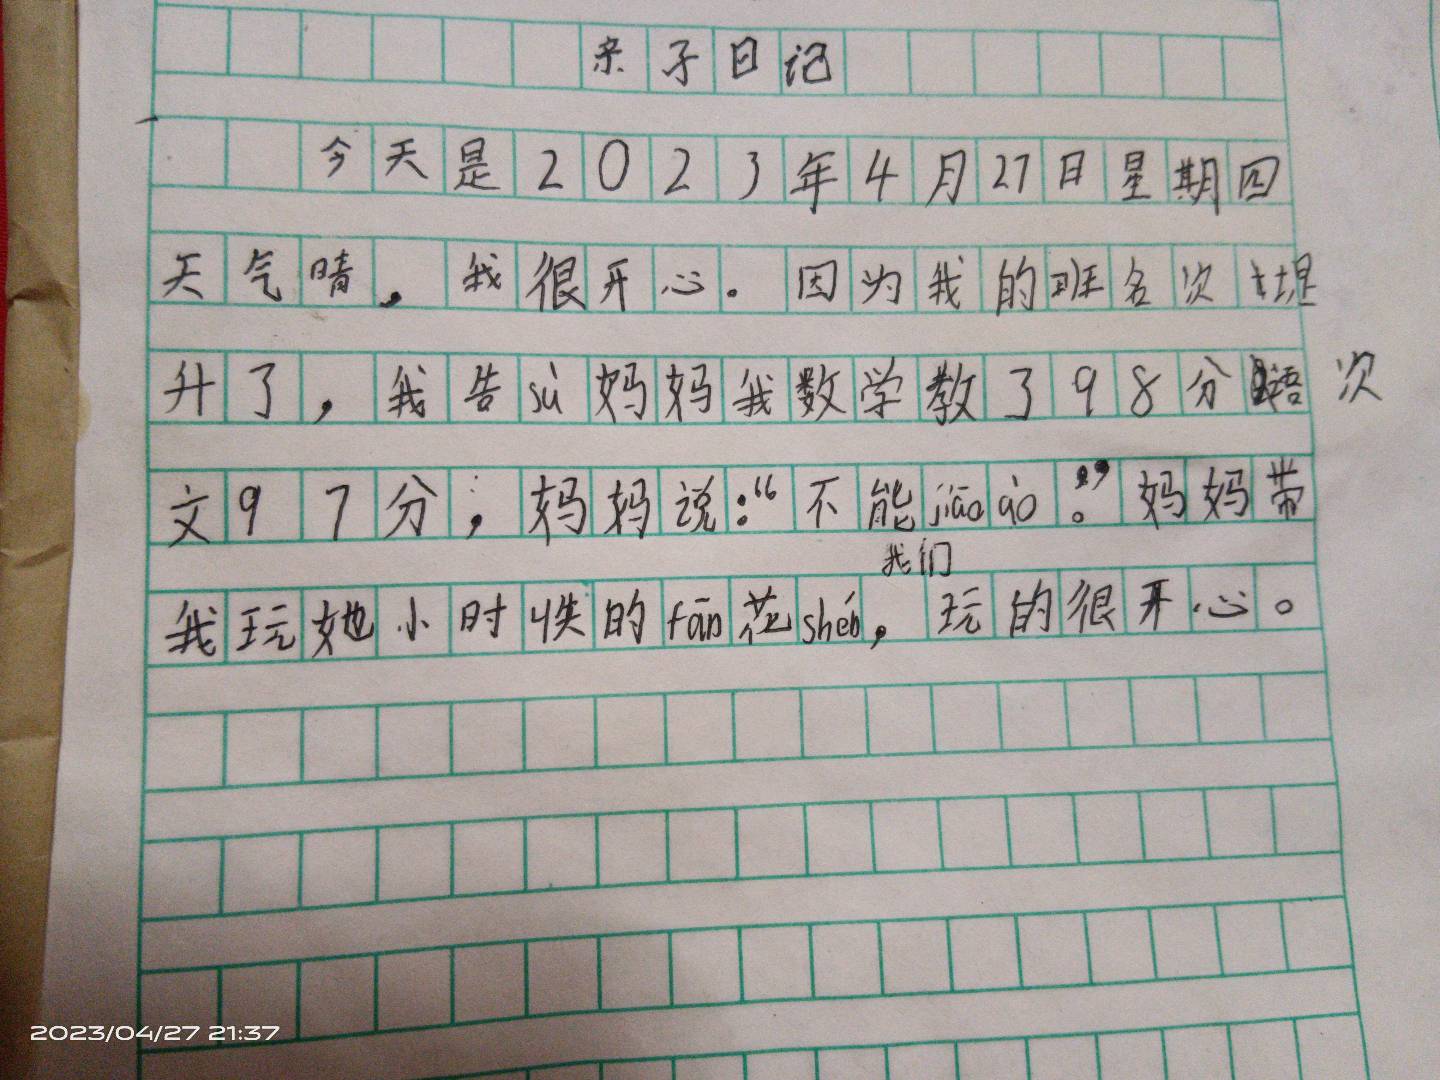 亲子日记
今天是2023年4月27日星期四
天气晴，我很开心。因为我的班名次提
升了，我告sù妈妈我数学教了98分语
次
文97分；妈妈说：“不能jiāoào。”妈妈带
我们
我玩她小时候的fān花shéń，玩的很开心。
2023/04/27 21:37